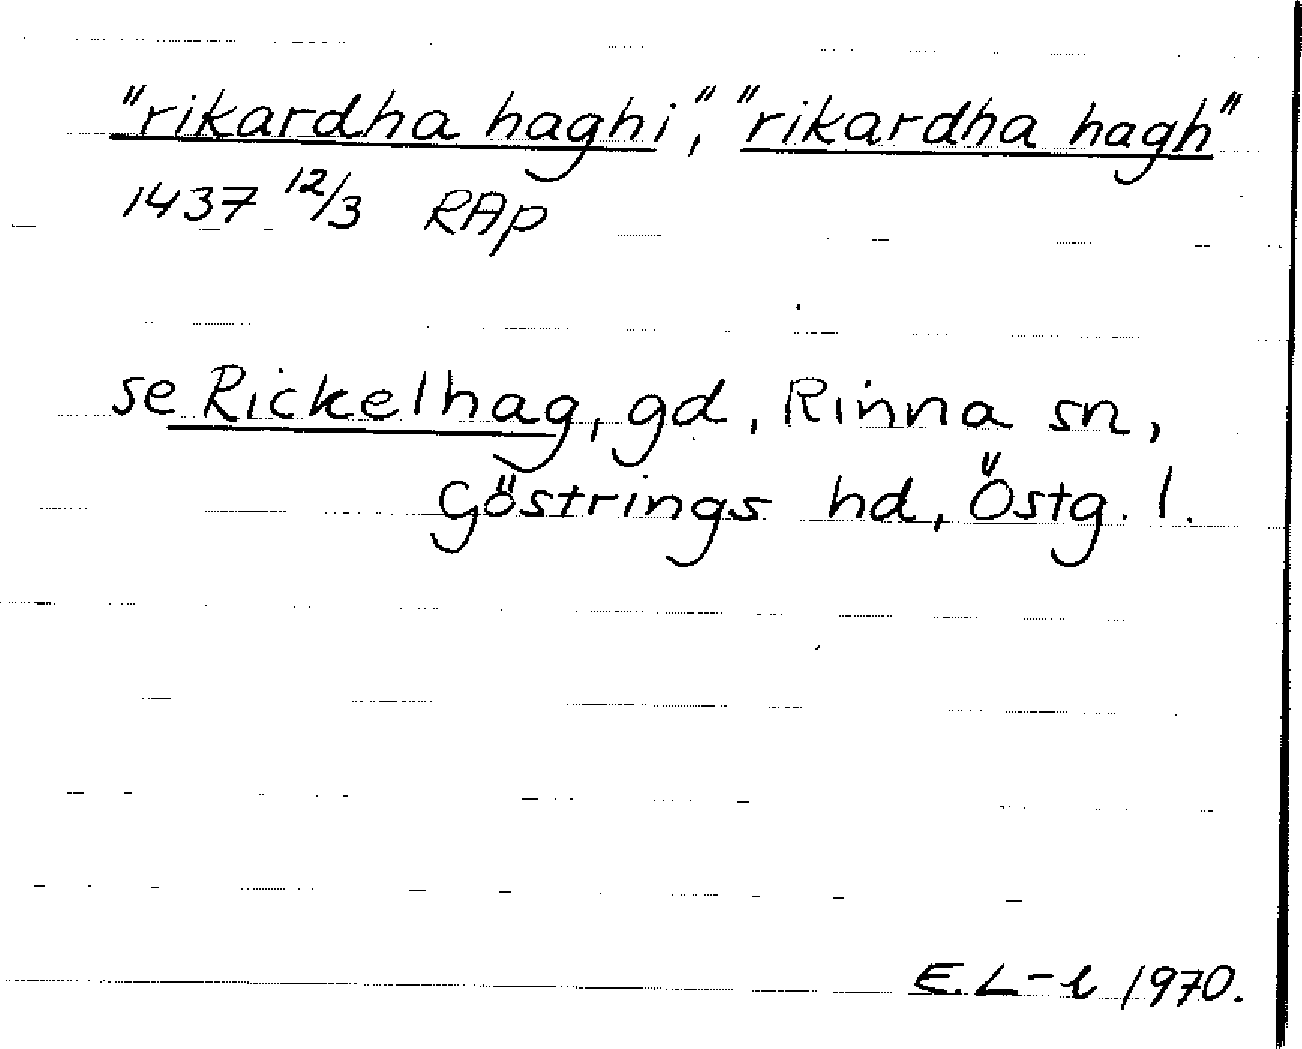 "rikardha haghi", "rikardha hagh"
1437 12/3 RAp
se Rickelhag, gd, Rinna sn,
Göstrings hd, Östg. l.
E.L-l 1970.